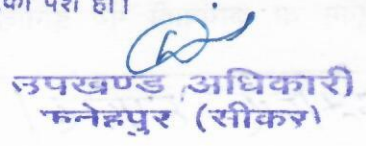 का पेश हो।
उपखण्ड अधिकारी
फतेहपुर (सीकर)